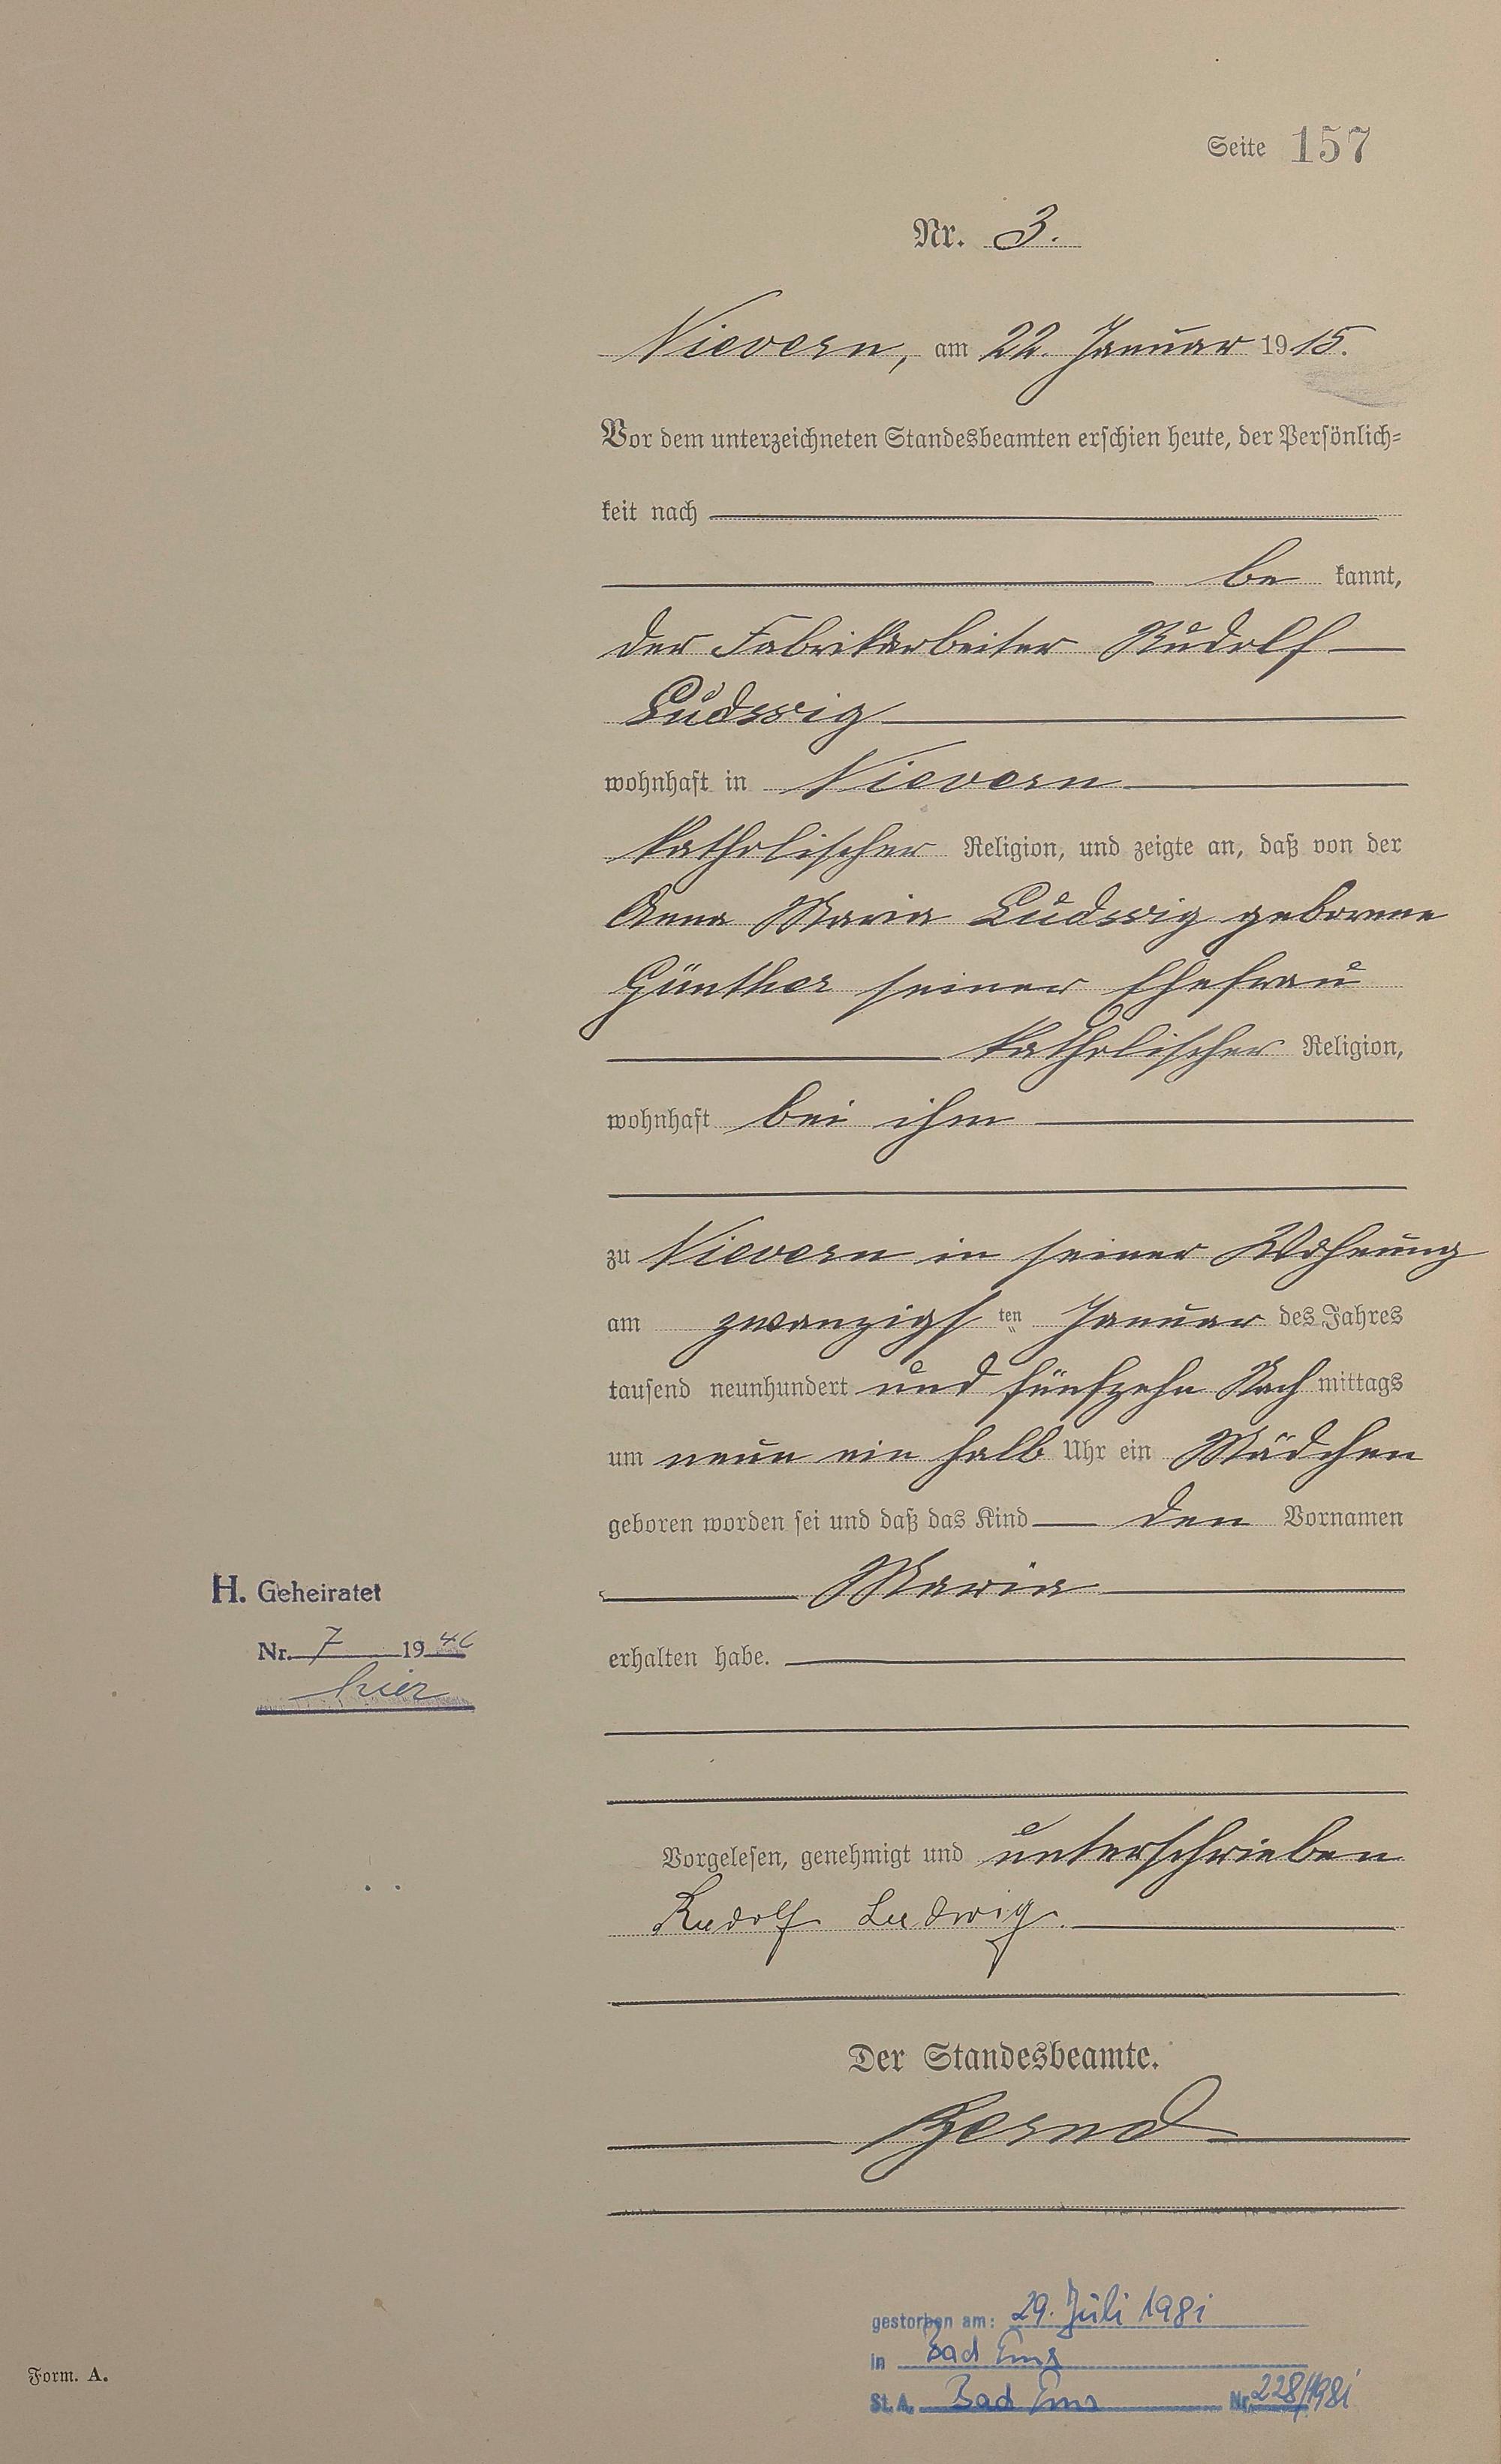 Seite 157
Nr. 3.
Nievern, am 22. Januar 1915.
Vor dem unterzeichneten Standesbeamten erschien heute, der Persönlich=
keit nach
be kannt,
der Fabrikarbeiter Rudolf
Ludwig
wohnhaft in Nievern
katholischer Religion, und zeigte an, daß von der
Anna Maria Ludwig geborene
Günther seiner Ehefrau
katholischer Religion,
wohnhaft bei ihm
zu Nievern in seiner Wohnung
am zwanzigsten Januar des Jahres
tausend neunhundert und fünfzehn Nachmittags
um neun ein halb Uhr ein Mädchen
geboren worden sei und daß das Kind den Vornamen
Maria
erhalten habe.
H. Geheiratet
Nr. 7 1946
hier
Vorgelesen, genehmigt und unterschrieben
Rudolf Ludwig.
Der Standesbeamte.
gestorben am: 29. Juli 1981
in Bad Ems
St.A. Bad Ems Nr. 228/1981
Form. A.